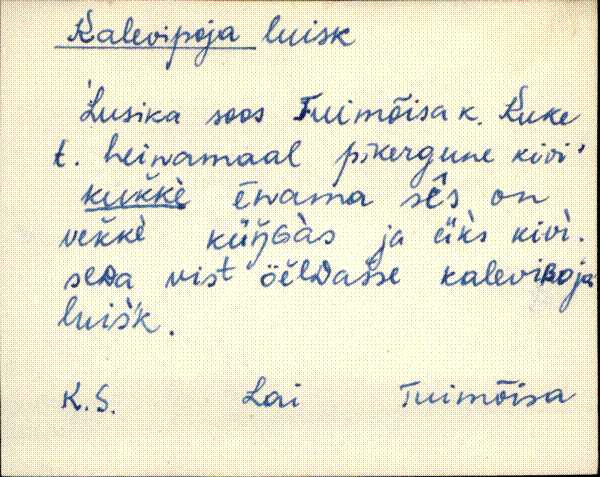 Kalevipoja luisk
Lusika soos Tuimõisa k. Kuke
t. heinamaal pikergune kivi
kukkè ēnama sês on
vekkè küŋGàs ja üks kivì.
seDa vist öèlDasse kaleviBoja
luišk.
K.S. Lai Tuimõisa